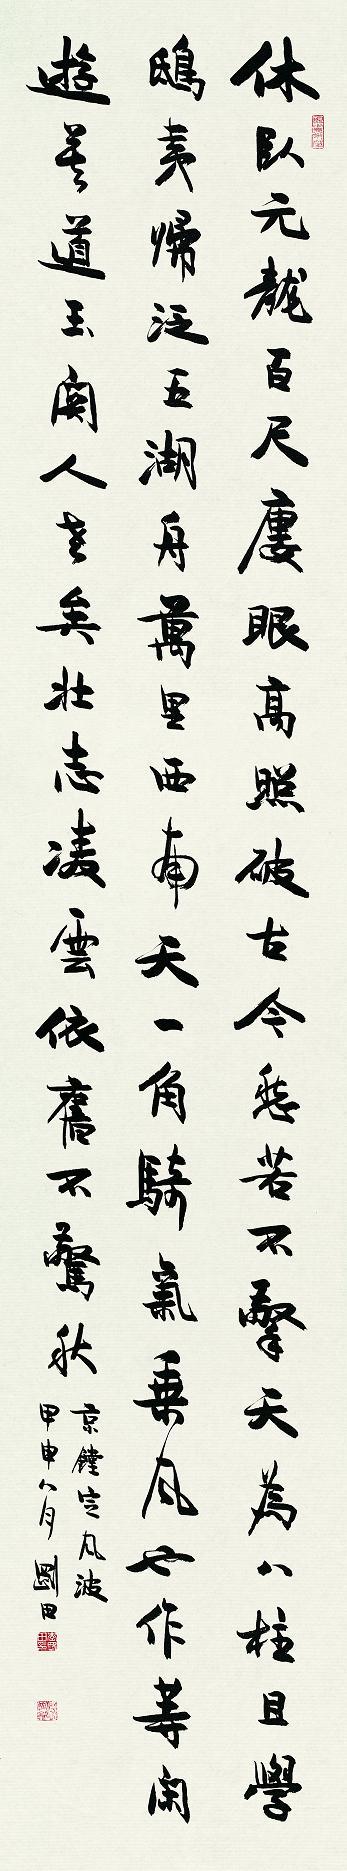 休臥元龍百尺廔眼高照破古今愁若不擎天為八柱且學
鴟夷歸泛五湖舟萬里西南天一角騎氣乗風也作等閑
遊莫道玉關人老矣壯志凌雲依舊不驚秋
京鏜定風波
甲申八月 剛田